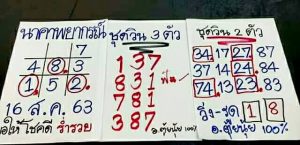 นาคาพยากรณ์
7
4 8 3
1 5 2
16 ส.ค. 63
ขอให้โชคดี ร่ำรวย
ชุดวิน 3 ตัว
1 37
8 31 ฟัน
7 81
3 87
อ.ตุ้ยนุ้ย 100%
ชุดวิน 2 ตัว
34 17 27 87
14 37 24 84
74 13 23 83
วิ่ง-รูด 1 8
อ.ตุ้ยนุ้ย 100%